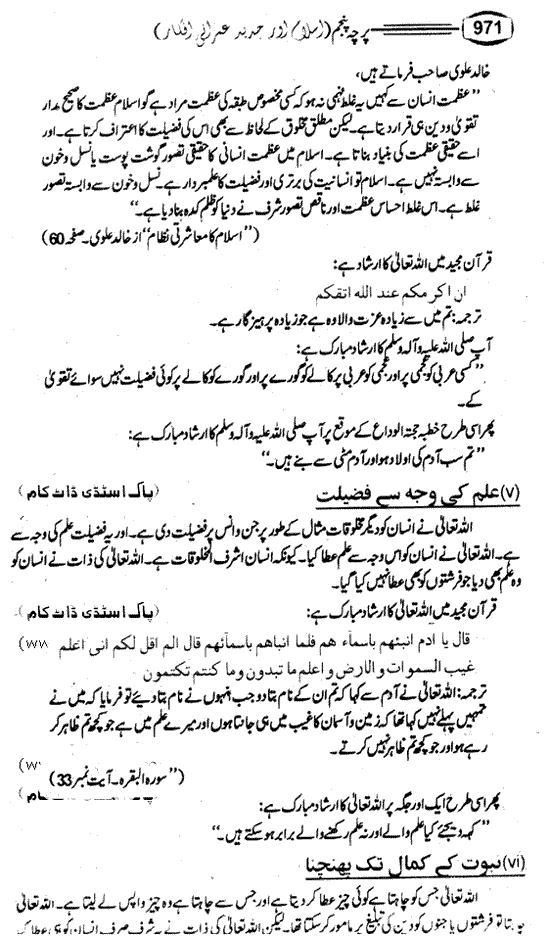 971 پرچہ پنجم (اسلام اور جدید عمرانی افکار)
خالد علوی صاحب فرماتے ہیں،
"عظمت انسان سے کہیں یہ غلط فہمی نہ ہو کہ کسی مخصوص طبقہ کی عظمت مراد ہے گو اسلام عظمت کا صحیح مدار
تقویٰ و دین ہی قرار دیتا ہے۔ لیکن مطلق مخلوق کے لحاظ سے بھی اس کی فضیلت کا اعتراف کرتا ہے۔ اور
اسے حقیقی عظمت کی بنیاد بناتا ہے۔ اسلام میں عظمت انسانی کا حقیقی تصور گوشت پوست یا نسل و خون
سے وابستہ نہیں ہے۔ اسلام تو انسانیت کی برتری اور فضیلت کا علمبردار ہے۔ نسل و خون سے وابستہ تصور
غلط ہے۔ اس غلط احساس عظمت اور ناقص تصور شرف نے دنیا کو ظلم کدہ بنا دیا ہے۔"
("اسلام کا معاشرتی نظام" از خالد علوی۔ صفحہ 60)
قرآن مجید میں اللہ تعالیٰ کا ارشاد ہے:
ان اکر مکم عند الله اتقکم
ترجمہ: تم میں سے زیادہ عزت والا وہ ہے جو زیادہ پرہیز گار ہے۔
آپ صلی اللہ علیہ و آلہ وسلم کا ارشاد مبارک ہے:
"کسی عربی کو عجمی پر اور عجمی کو عربی پر کالے کو گورے پر اور گورے کو کالے پر کوئی فضیلت نہیں سوائے تقویٰ
کے۔
پھر اسی طرح خطبہ حجۃ الوداع کے موقع پر آپ صلی اللہ علیہ و آلہ وسلم کا ارشاد مبارک ہے:
"تم سب آدم کی اولاد ہو اور آدم مٹی سے بنے ہیں۔"
(v) علم کی وجہ سے فضیلت (پاک اسٹڈی ڈاٹ کام)
اللہ تعالیٰ نے انسان کو دیگر مخلوقات مثال کے طور پر جن و انس پر فضیلت دی ہے۔ اور یہ فضیلت علم کی وجہ سے
ہے۔ اللہ تعالیٰ نے انسان کو اس وجہ سے علم عطا کیا۔ کیونکہ انسان اشرف المخلوقات ہے۔ اللہ تعالیٰ کی ذات نے انسان کو
وہ علم بھی دیا جو فرشتوں کو بھی عطا نہیں کیا گیا۔
قرآن مجید میں اللہ تعالیٰ کا ارشاد مبارک ہے: (پاک اسٹڈی ڈاٹ کام)
قال یا ادم انبئهم باسمآء هم فلما انباهم باسمآئهم قال الم اقل لکم انی اعلم
غیب السموات و الارض و اعلم ما تبدون وما کنتم تکتمون
ترجمہ: اللہ تعالیٰ نے آدم سے کہا کہ تم ان کے نام بتا دو جب انہوں نے نام بتا دیئے تو فرمایا کہ میں نے
تمہیں پہلے نہیں کہا تھا کہ زمین و آسمان کا غیب میں ہی جانتا ہوں اور میرے علم میں ہے جو کچھ تم ظاہر کر
رہے ہو اور جو کچھ تم ظاہر نہیں کرتے۔
("سورہ البقرہ۔ آیت نمبر 33)
پھر اسی طرح ایک اور جگہ پر اللہ تعالیٰ کا ارشاد مبارک ہے:
"کہہ دیجئے کیا علم والے اور نہ علم رکھنے والے برابر ہو سکتے ہیں۔"
(vi) نبوت کے کمال تک پهنچنا
اللہ تعالیٰ جس کو چاہتا ہے کوئی چیز عطا کر دیتا ہے اور جس سے چاہتا ہے وہ چیز واپس لے لیتا ہے۔ اللہ تعالیٰ
چاہتا تو فرشتوں یا جنوں کو دین کی تبلیغ پر مامور کر سکتا تھا۔ لیکن اللہ تعالیٰ کی ذات نے یہ شرف صرف انسان کو ہی عطا کیا